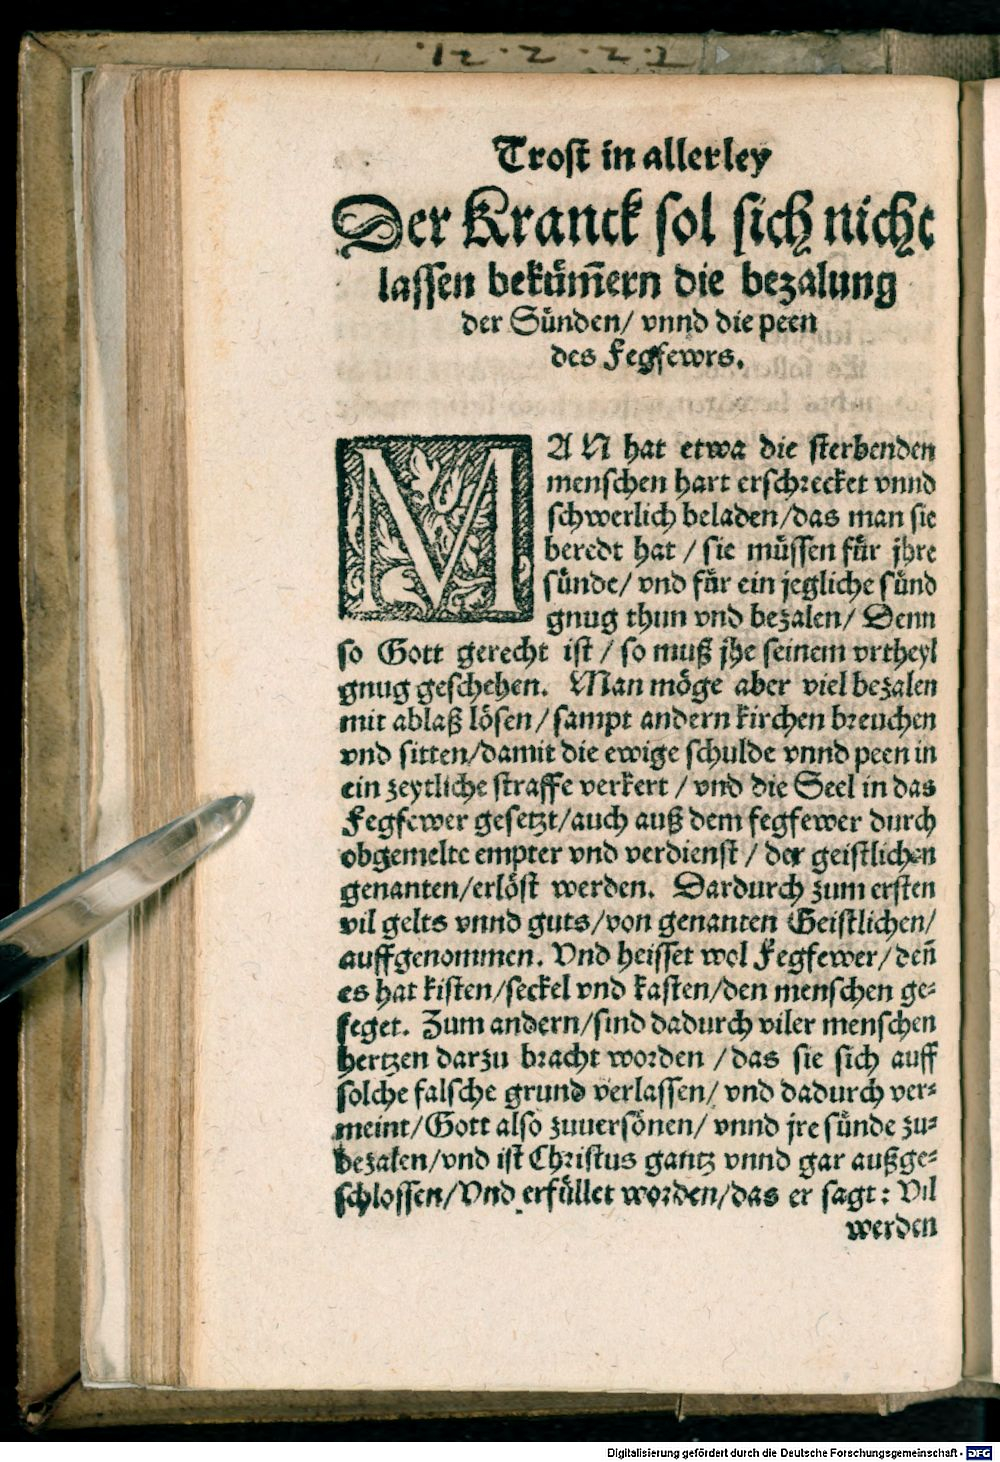 Trost in allerley
Der Kranck sol sich nicht
lassen bekům̃ern die bezalung
der Sünden/ vnnd die peen
des Fegfewrs.
MAN hat etwa die sterbenden
menschen hart erschrecket vnnd
schwerlich beladen/das man sie
beredt hat / sie müssen für jhre
sünde/ vnd für ein jegliche sünd
gnug thun vnd bezalen/ Denn
so Gott gerecht ist / so muß jhe seinem vrtheyl
gnug geschehen. Man möge aber viel bezalen
mit ablaß lösen/ sampt andern kirchen breuchen
vnd sitten/damit die ewige schulde vnnd peen in
ein zeytliche straffe verkert / vnd die Seel in das
Fegfewer gesetzt/auch auß dem fegfewer durch
obgemelte empter vnd verdienst / der geistlichen
genanten/erlöst werden. Dardurch zum ersten
vil gelts vnnd guts/von genanten Geistlichen/
auffgenommen. Vnd heisset wol Fegfewer/ deñ
es hat kisten/seckel vnd kasten/den menschen ge-
feget. Zum andern/sind dadurch viler menschen
hertzen darzu bracht worden /das sie sich auff
solche falsche grund verlassen/ vnd dadurch ver-
meint/Gott also zuuersönen/ vnnd jre sünde zu-
bezalen/vnd ist Christus gantz vnnd gar außge-
schlossen/Vnd erfüllet worden/das er sagt: Vil
werden
Digitalisierung gefördert durch die Deutsche Forschungsgemeinschaft - DFG